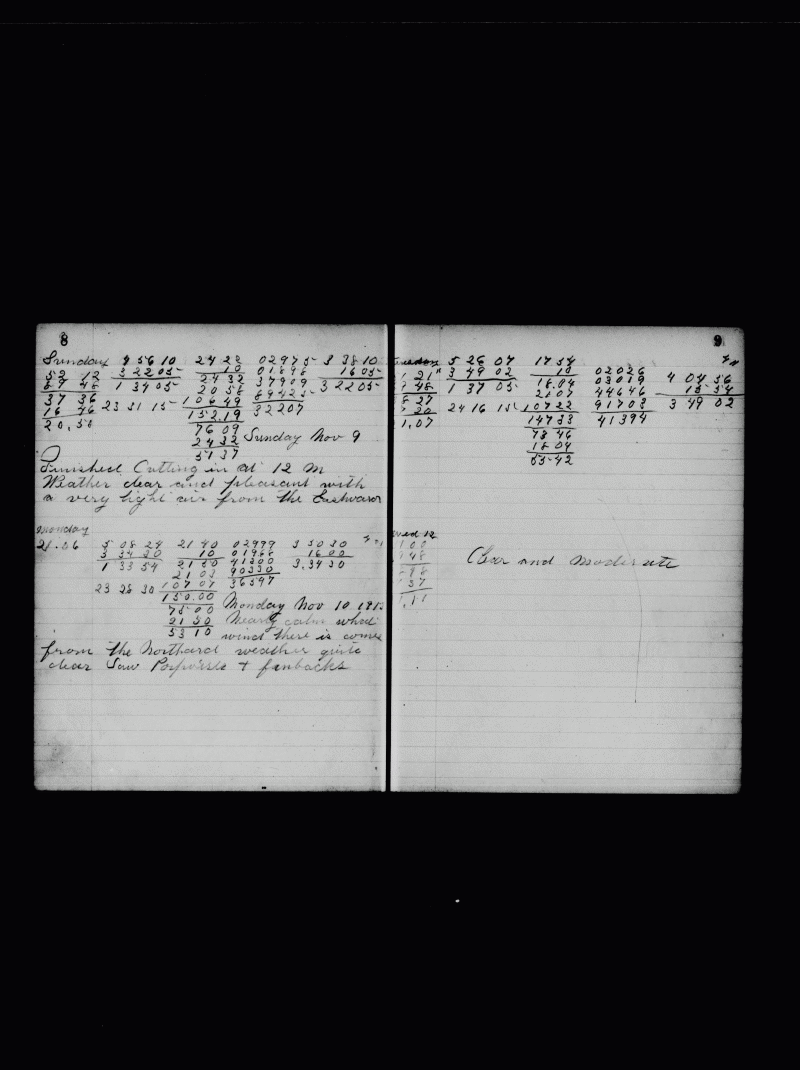 8
Sunday 4 56 10 24 22 02975 3 38 10
52 12 3 22 05 10 01898 16 05
87 48 1 34 05 24 32 37909 3 22 05
37 36 20 58 89425
16 46 23 31 15 106 49 32207
20,50 152,19
76 09 Sunday Nov 9
24 32
51 37
Finished Cutting in at 12 M
Weather clear and pleasant with
a very light air from the Eastward
Monday
21.06 5 08 24 21 40 02999 3 50 30
3 34 30 10 01966 16 00
1 33 54 21 50 41300 3,34 30
21 03 90330
23 28 30 107 07 36597
150.00
75 00 Monday Nov 10 1913
21 50 Nearly calm what
53 10 wind there is comes
from the Northard weather quite
clear Saw Porpoise + finbacks
9
5 26 07 17 54
3 49 02 10 02026
1 37 05 18.04 03019 4 04 56
21 07 44646 15 54
24 16 15 107 22 91703 3 49 02
1,07 147 33 41394
73 46
18 04
55 42
Wed 12
Clear and Moderate